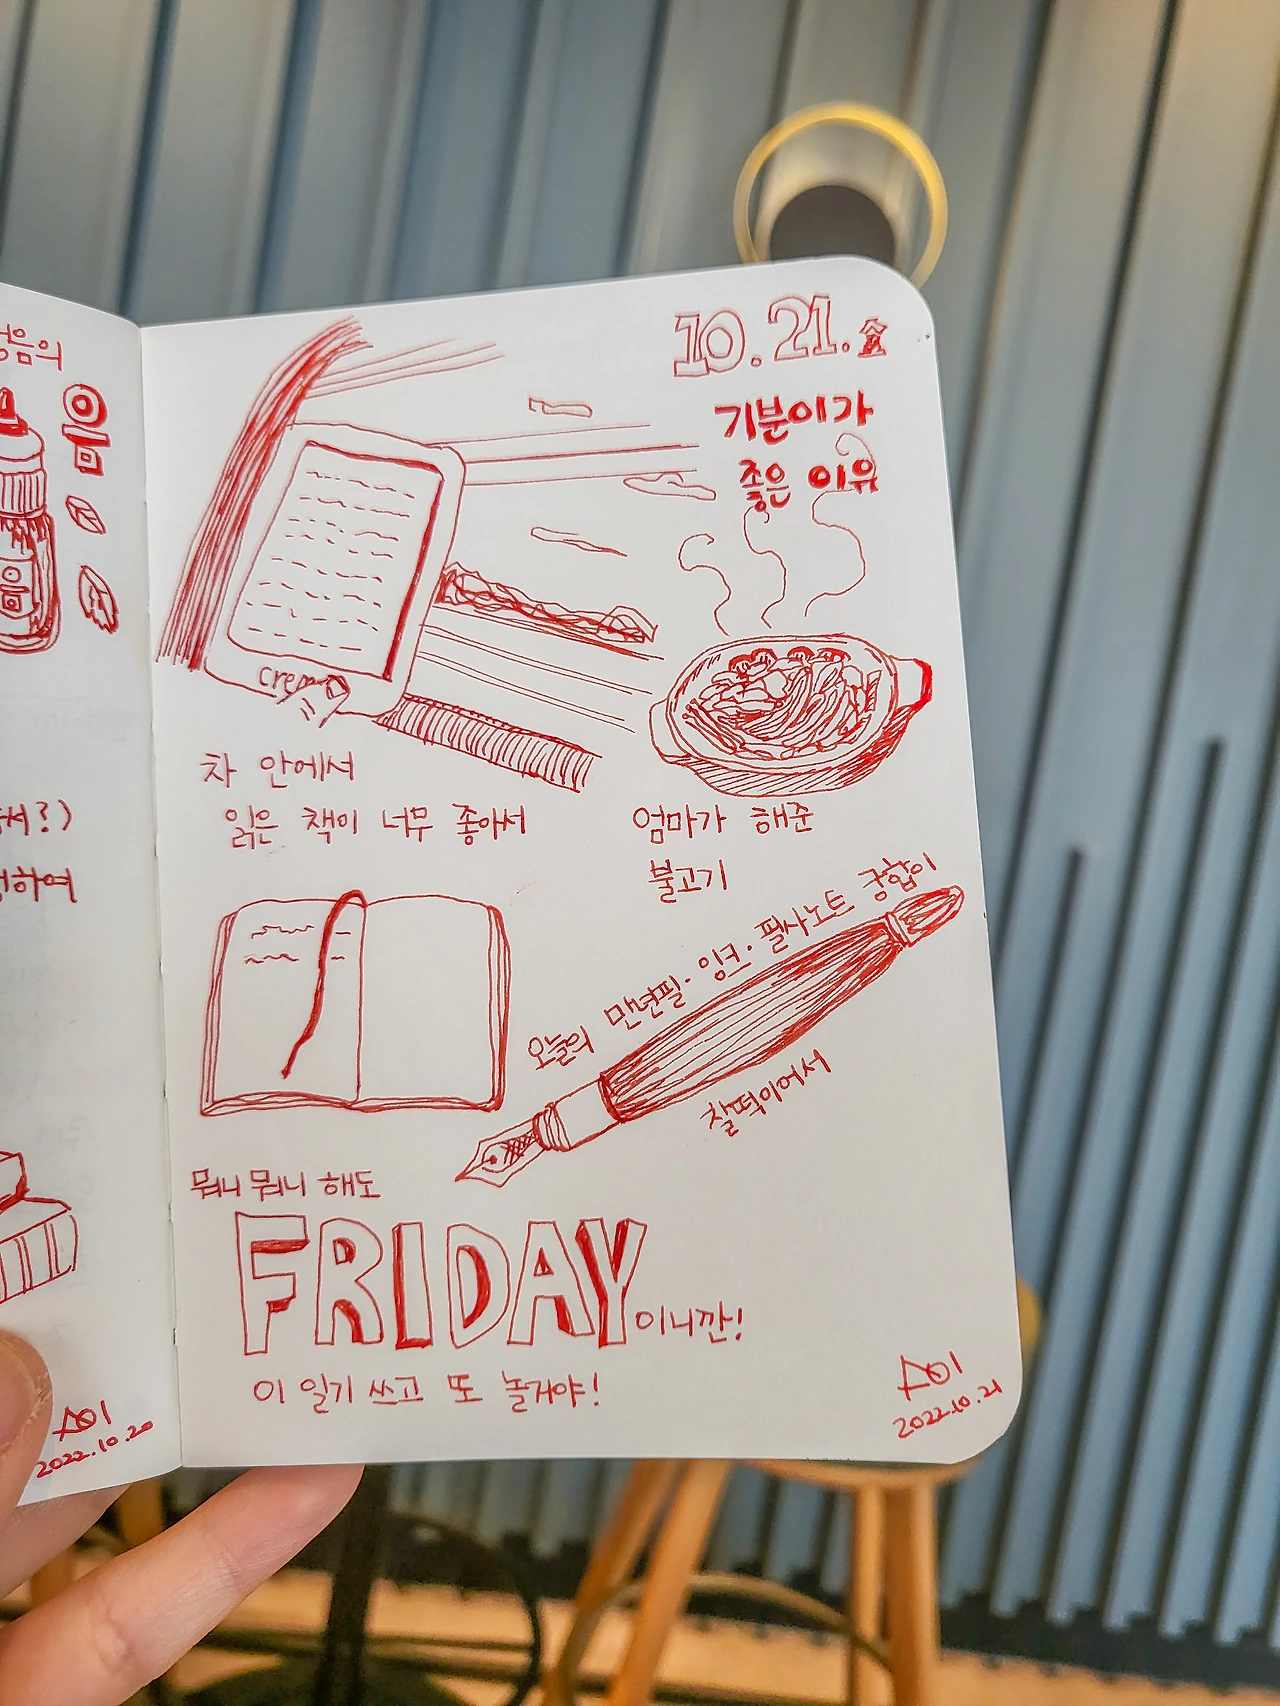 서?)
하여
2022.10.20
10.21.금
기분이가
좋은 이유
crema
차 안에서
읽은 책이 너무 좋아서
엄마가 해준
불고기
오늘의 만년필·잉크·필사노트 궁합이
찰떡이어서
뭐니 뭐니 해도
FRIDAY이니깐!
이 일기 쓰고 또 놀거야!
2022.10.21